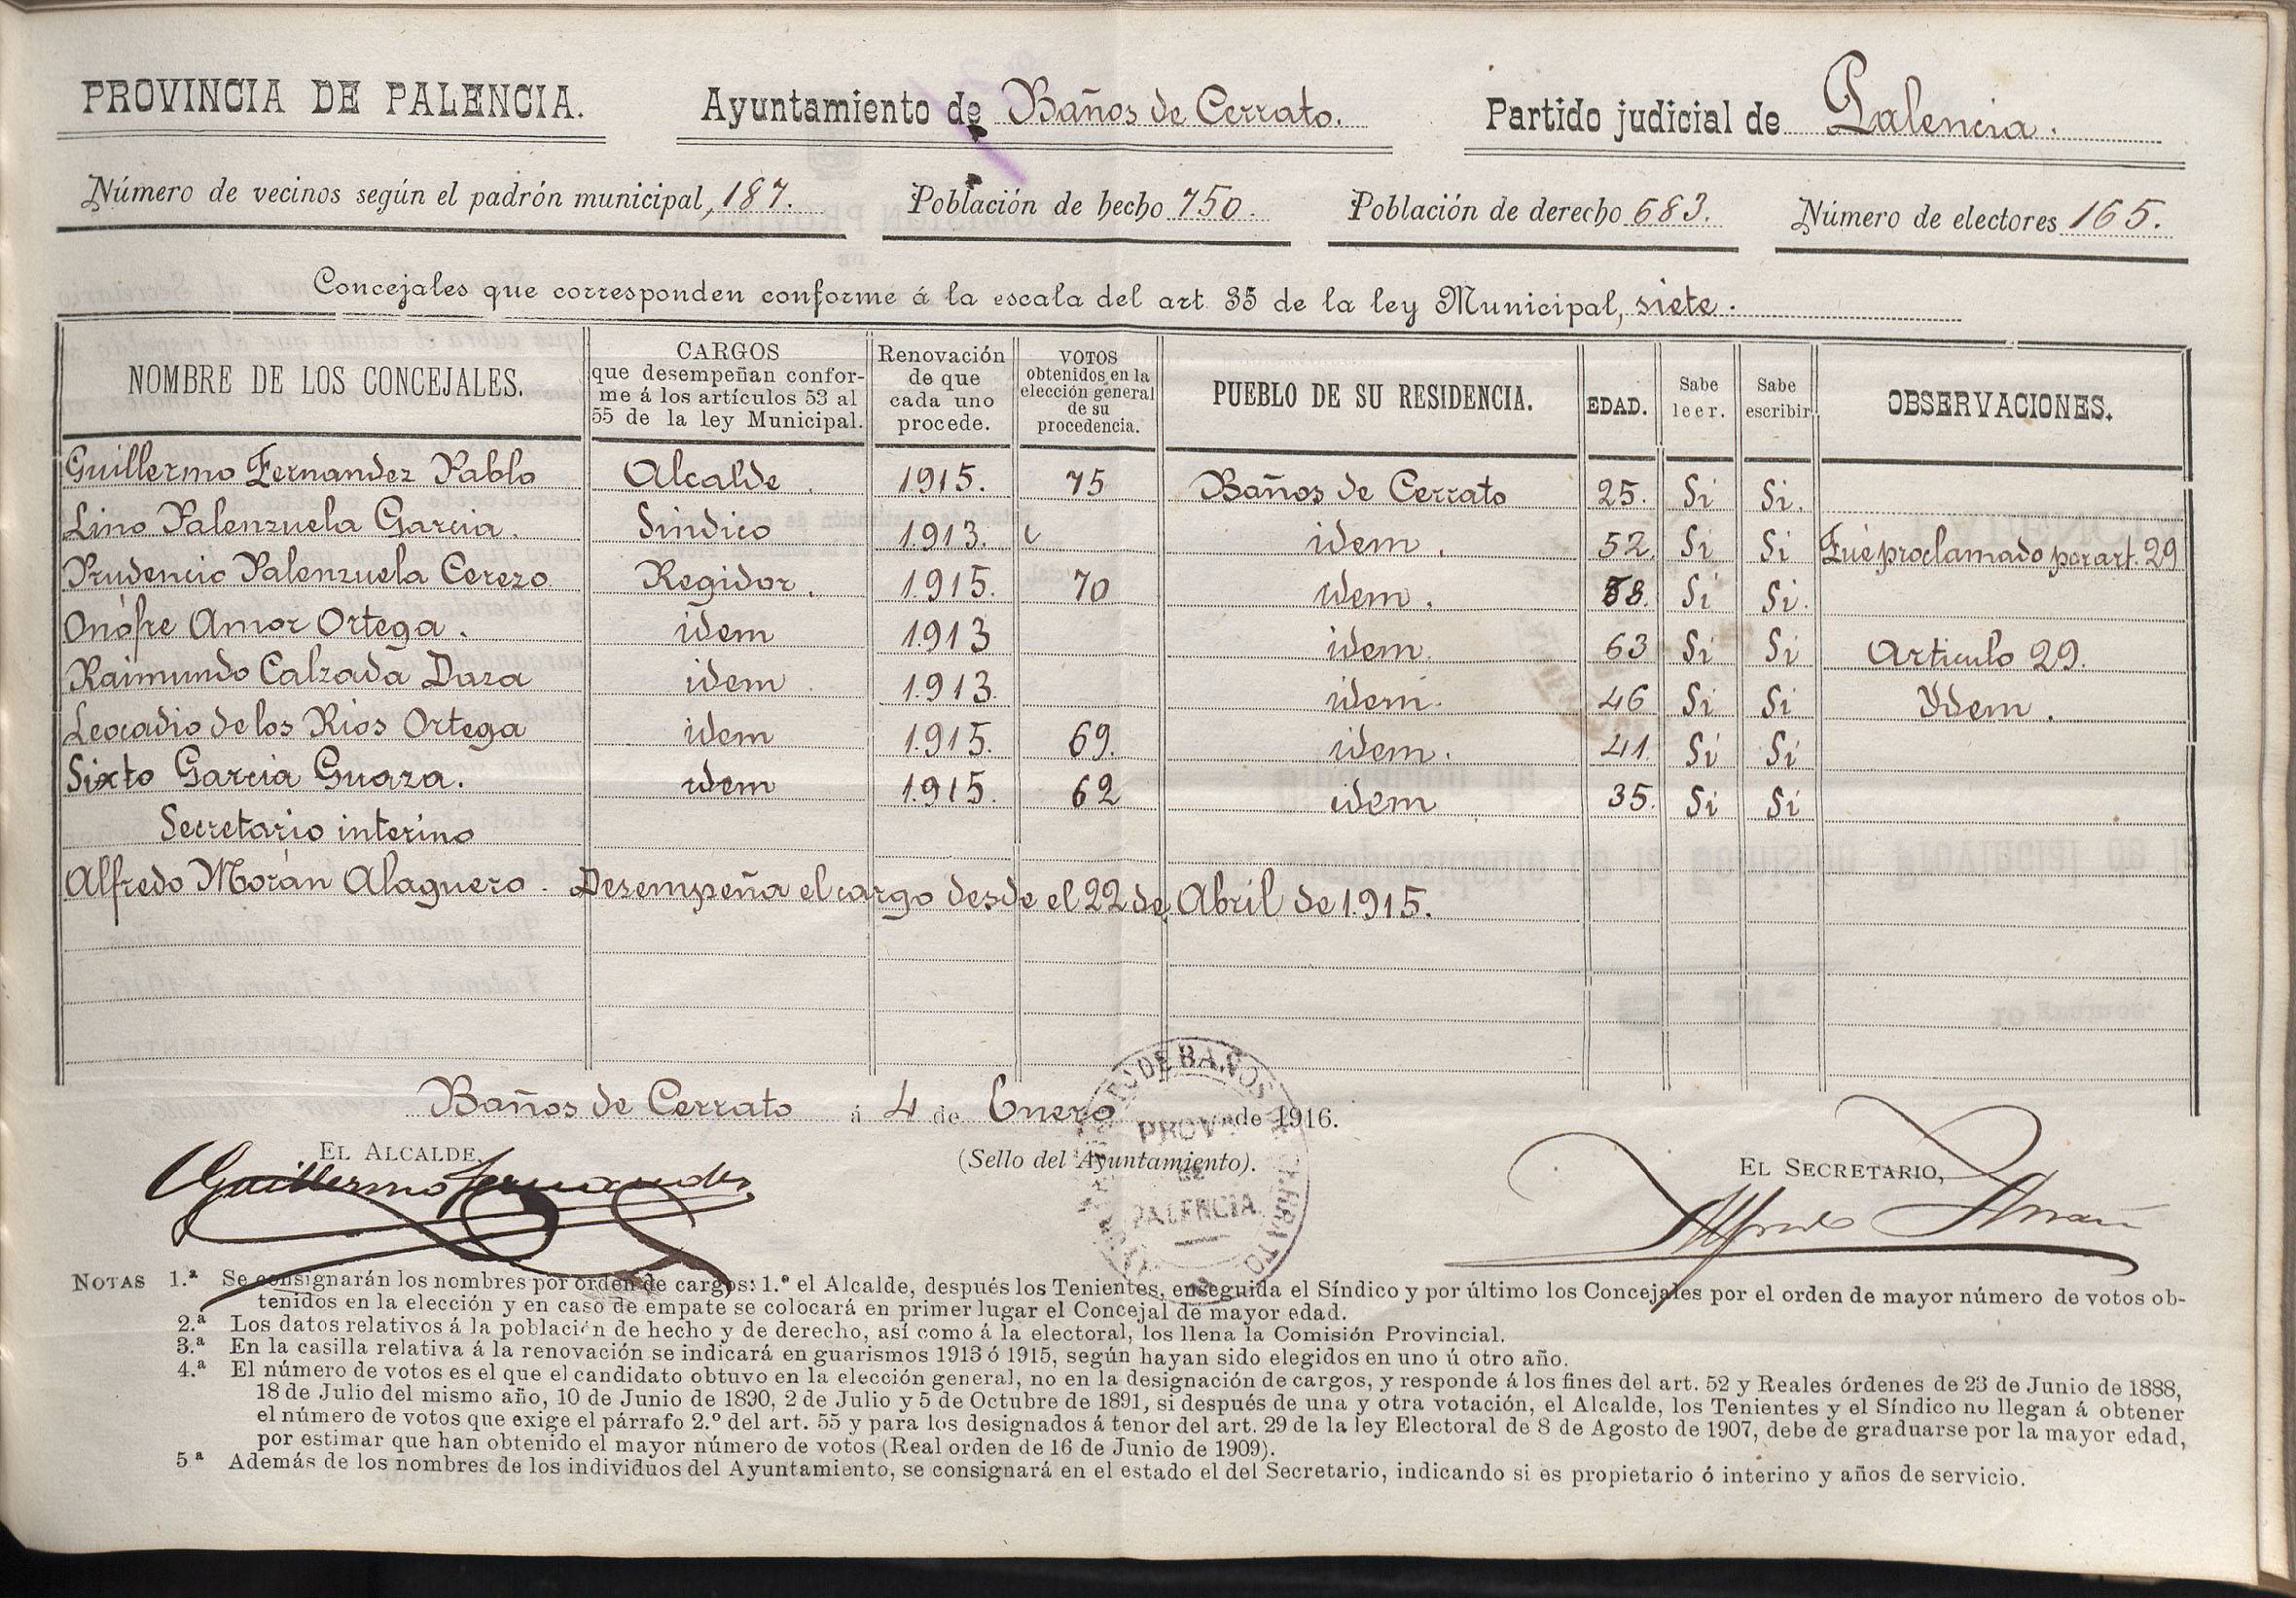 PROVINCIA DE PALENCIA. Ayuntamiento de Baños de Cerrato. Partido judicial de Palencia.
Número de vecinos según el padrón municipal, 187. Población de hecho 750. Población de derecho 683. Número de electores 165.
Concejales que corresponden conforme á la escala del art 35 de la ley Municipal, siete.
NOMBRE DE LOS CONCEJALES. CARGOS que desempeñan conforme á los artículos 53 al 55 de la ley Municipal. Renovación de que cada uno procede. VOTOS obtenidos en la elección general de su procedencia. PUEBLO DE SU RESIDENCIA. EDAD. Sabe leer. Sabe escribir. OBSERVACIONES.
Guillermo Fernandez Pablo Alcalde. 1915. 75 Baños de Cerrato 25. Si Si.
Lino Valenzuela Garcia. Sindico 1913. idem. 52. Si Si Fué proclamado por art. 29
Prudencio Valenzuela Cerezo Regidor. 1915. 70 idem. 58. Si Si.
Onófre Amor Ortega. idem 1913 idem. 63 Si Si Articulo 29.
Raimundo Calzada Daza idem 1913. idem. 46 Si Si Ydem.
Leocadio de los Rios Ortega idem 1915. 69. idem. 41. Si Si
Sixto Garcia Guaza. idem 1915. 62 idem 35. Si Si
Secretario interino
Alfredo Morán Alaguero. Desempeña el cargo desde el 22 de Abril de 1915.
Baños de Cerrato á 4 de Enero de 1916.
EL ALCALDE, (Sello del Ayuntamiento). EL SECRETARIO,
Guillermo Fernandez Alfredo Moran
PROVA DE PALENCIA
NOTAS 1.ª Se consignarán los nombres por orden de cargos: 1.º el Alcalde, después los Tenientes, enseguida el Síndico y por último los Concejales por el orden de mayor número de votos ob-
tenidos en la elección y en caso de empate se colocará en primer lugar el Concejal de mayor edad.
2.ª Los datos relativos á la población de hecho y de derecho, así como á la electoral, los llena la Comisión Provincial.
3.ª En la casilla relativa á la renovación se indicará en guarismos 1913 ó 1915, según hayan sido elegidos en uno ú otro año.
4.ª El número de votos es el que el candidato obtuvo en la elección general, no en la designación de cargos, y responde á los fines del art. 52 y Reales órdenes de 23 de Junio de 1888,
18 de Julio del mismo año, 10 de Junio de 1890, 2 de Julio y 5 de Octubre de 1891, si después de una y otra votación, el Alcalde, los Tenientes y el Síndico no llegan á obtener
el número de votos que exige el párrafo 2.º del art. 55 y para los designados á tenor del art. 29 de la ley Electoral de 8 de Agosto de 1907, debe de graduarse por la mayor edad,
por estimar que han obtenido el mayor número de votos (Real orden de 16 de Junio de 1909).
5ª Además de los nombres de los individuos del Ayuntamiento, se consignará en el estado el del Secretario, indicando si es propietario ó interino y años de servicio.